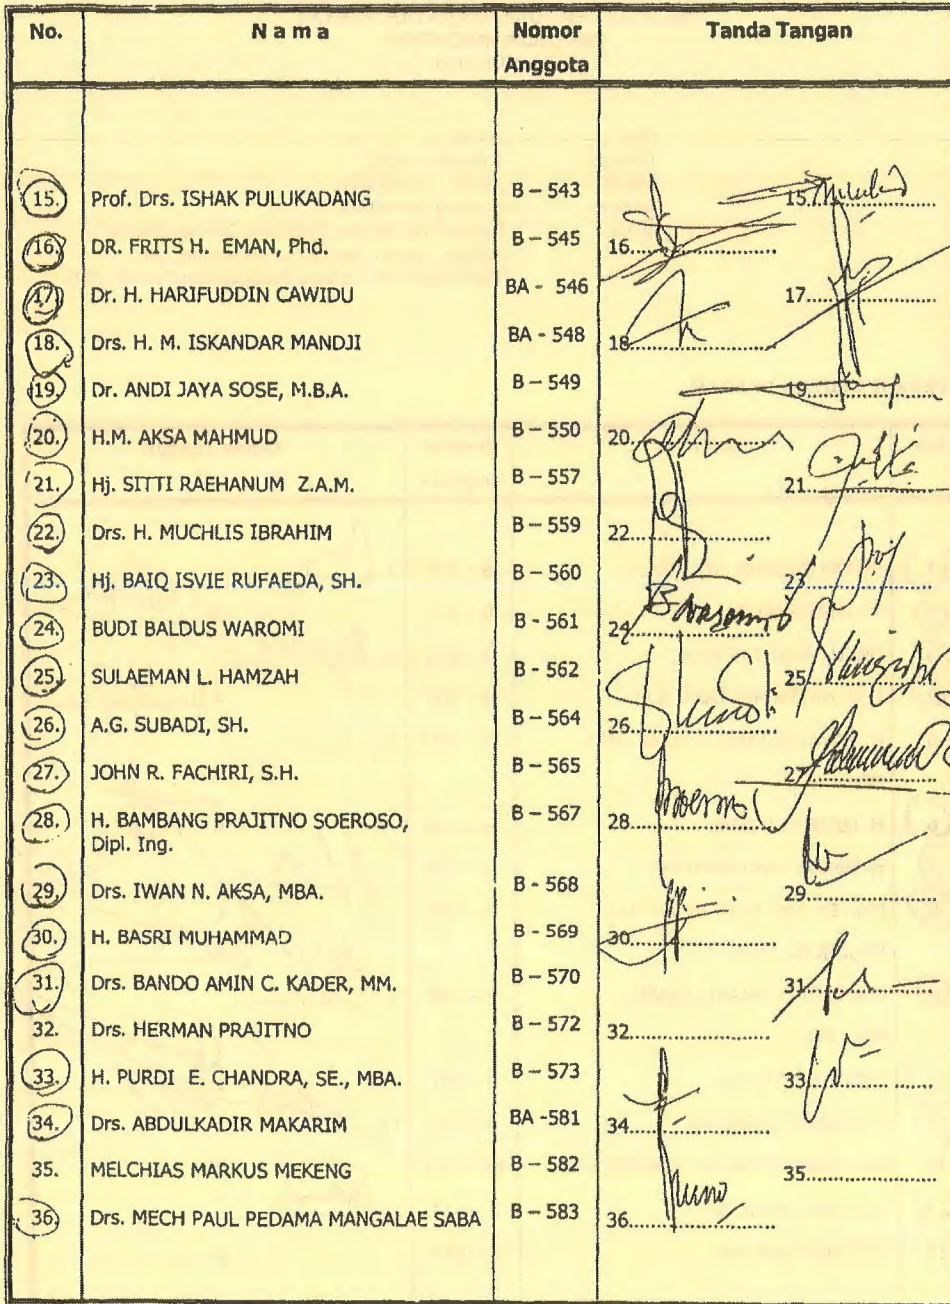 No. N a m a Nomor Anggota Tanda Tangan
15. Prof. Drs. ISHAK PULUKADANG B – 543 15..................
16. DR. FRITS H. EMAN, Phd. B – 545 16..................
17. Dr. H. HARIFUDDIN CAWIDU BA - 546 17..................
18. Drs. H. M. ISKANDAR MANDJI BA - 548 18..................
19. Dr. ANDI JAYA SOSE, M.B.A. B – 549 19..................
20. H.M. AKSA MAHMUD B – 550 20..................
21. Hj. SITTI RAEHANUM Z.A.M. B – 557 21..................
22. Drs. H. MUCHLIS IBRAHIM B – 559 22..................
23. Hj. BAIQ ISVIE RUFAEDA, SH. B – 560 23..................
24. BUDI BALDUS WAROMI B - 561 24..................
25. SULAEMAN L. HAMZAH B – 562 25..................
26. A.G. SUBADI, SH. B – 564 26..................
27. JOHN R. FACHIRI, S.H. B – 565 27..................
28. H. BAMBANG PRAJITNO SOEROSO, B – 567 28..................
Dipl. Ing.
29. Drs. IWAN N. AKSA, MBA. B - 568 29..................
30. H. BASRI MUHAMMAD B - 569 30..................
31. Drs. BANDO AMIN C. KADER, MM. B – 570 31..................
32. Drs. HERMAN PRAJITNO B – 572 32..................
33. H. PURDI E. CHANDRA, SE., MBA. B – 573 33..................
34. Drs. ABDULKADIR MAKARIM BA -581 34..................
35. MELCHIAS MARKUS MEKENG B – 582 35..................
36. Drs. MECH PAUL PEDAMA MANGALAE SABA B – 583 36..................